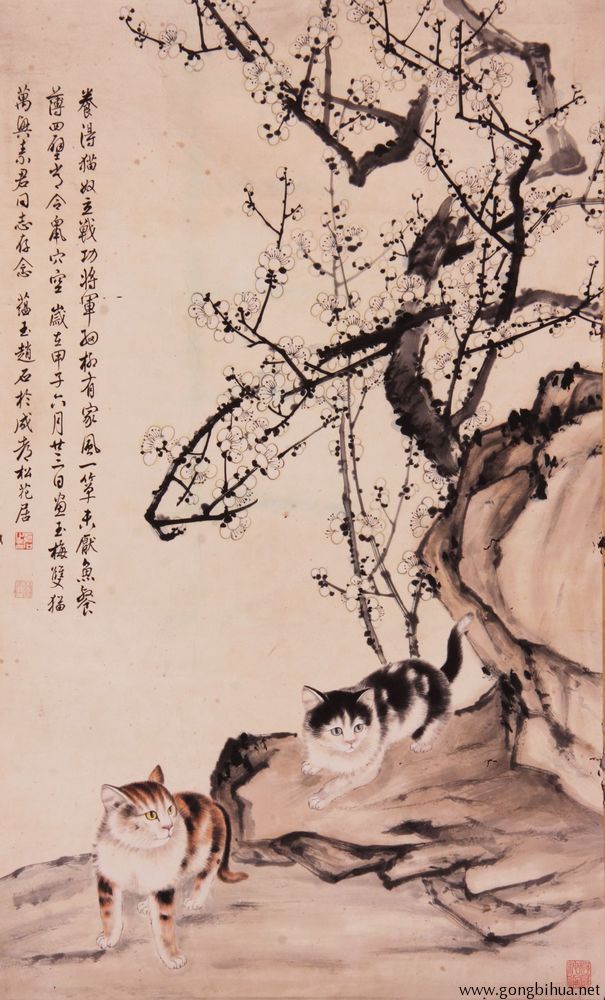 養得猫奴立戰功將軍細柳有家風一簞未厭魚餐
薄四壁當令鼠穴空 歲在甲子六月廿三日畫玉梅雙猫
萬興素君同志存念 蕴玉趙石於成都松花居
www.gongbihua.net